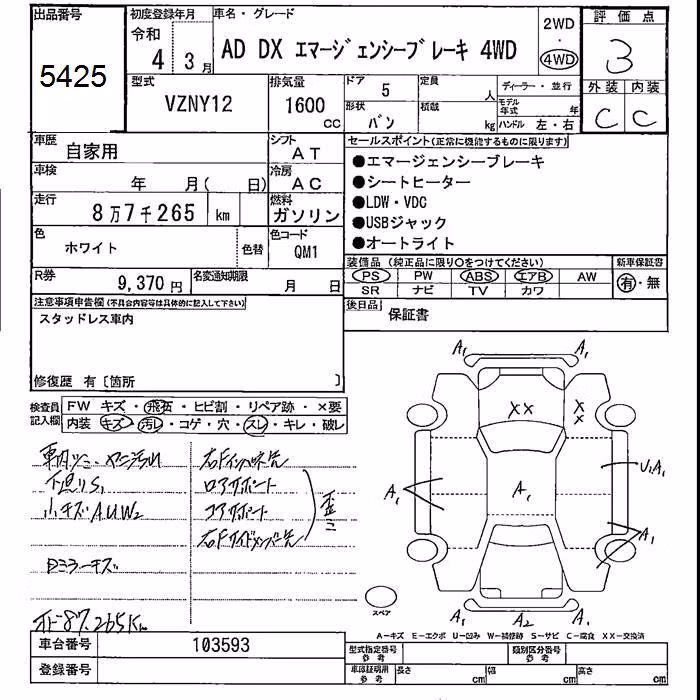 出品番号
5425
初度登録年月
令和
4 3月
車名・グレード
AD DX エマージェンシーブレーキ 4WD
2WD
・
4WD
評価点
3
外装 内装
C C
型式
VZNY12
排気量
1600
CC
ドア
5
定員
人
形状
バン
積載
kg
ディーラー・並行
モデル年式 年
ハンドル 左・右
車歴
自家用
シフト
AT
車検
年 月( 日)
冷房
AC
走行
8万7千265 km
燃料
ガソリン
色
ホワイト
色替
色コード
QM1
R券
9,370円
名変通知期限
月 日
セールスポイント(正常に機能するものに限ります)
●エマージェンシーブレーキ
●シートヒーター
●LDW・VDC
●USBジャック
●オートライト
装備品(純正品に限り○をつけてください)
PS PW ABS エアB AW
SR ナビ TV カワ
新車保証書
有・無
後日品
保証書
注意事項申告欄(不具合内容等は具体的に記入して下さい)
スタッドレス車内
修復歴 有〔箇所 〕
検査員記入欄
FW キズ・飛石・ヒビ割・リペア跡・×要
内装 キズ・汚レ・コゲ・穴・スレ・キレ・破レ
小キズAUW2
ロアサポート
コアサポート
Dミラーキズ
オド87,265Km
A1 A1
XX
X
X
A1
A1
U1A1
A1
A1 A2 A1
スペア
A-キズ E-エクボ U-凹み W-補修跡 S-サビ C-腐食 XX-交換済
車台番号
103593
登録番号
型式指定番号
参考
類別区分番号
参考
車庫証明用
参考
長さ cm
幅 cm
高さ cm